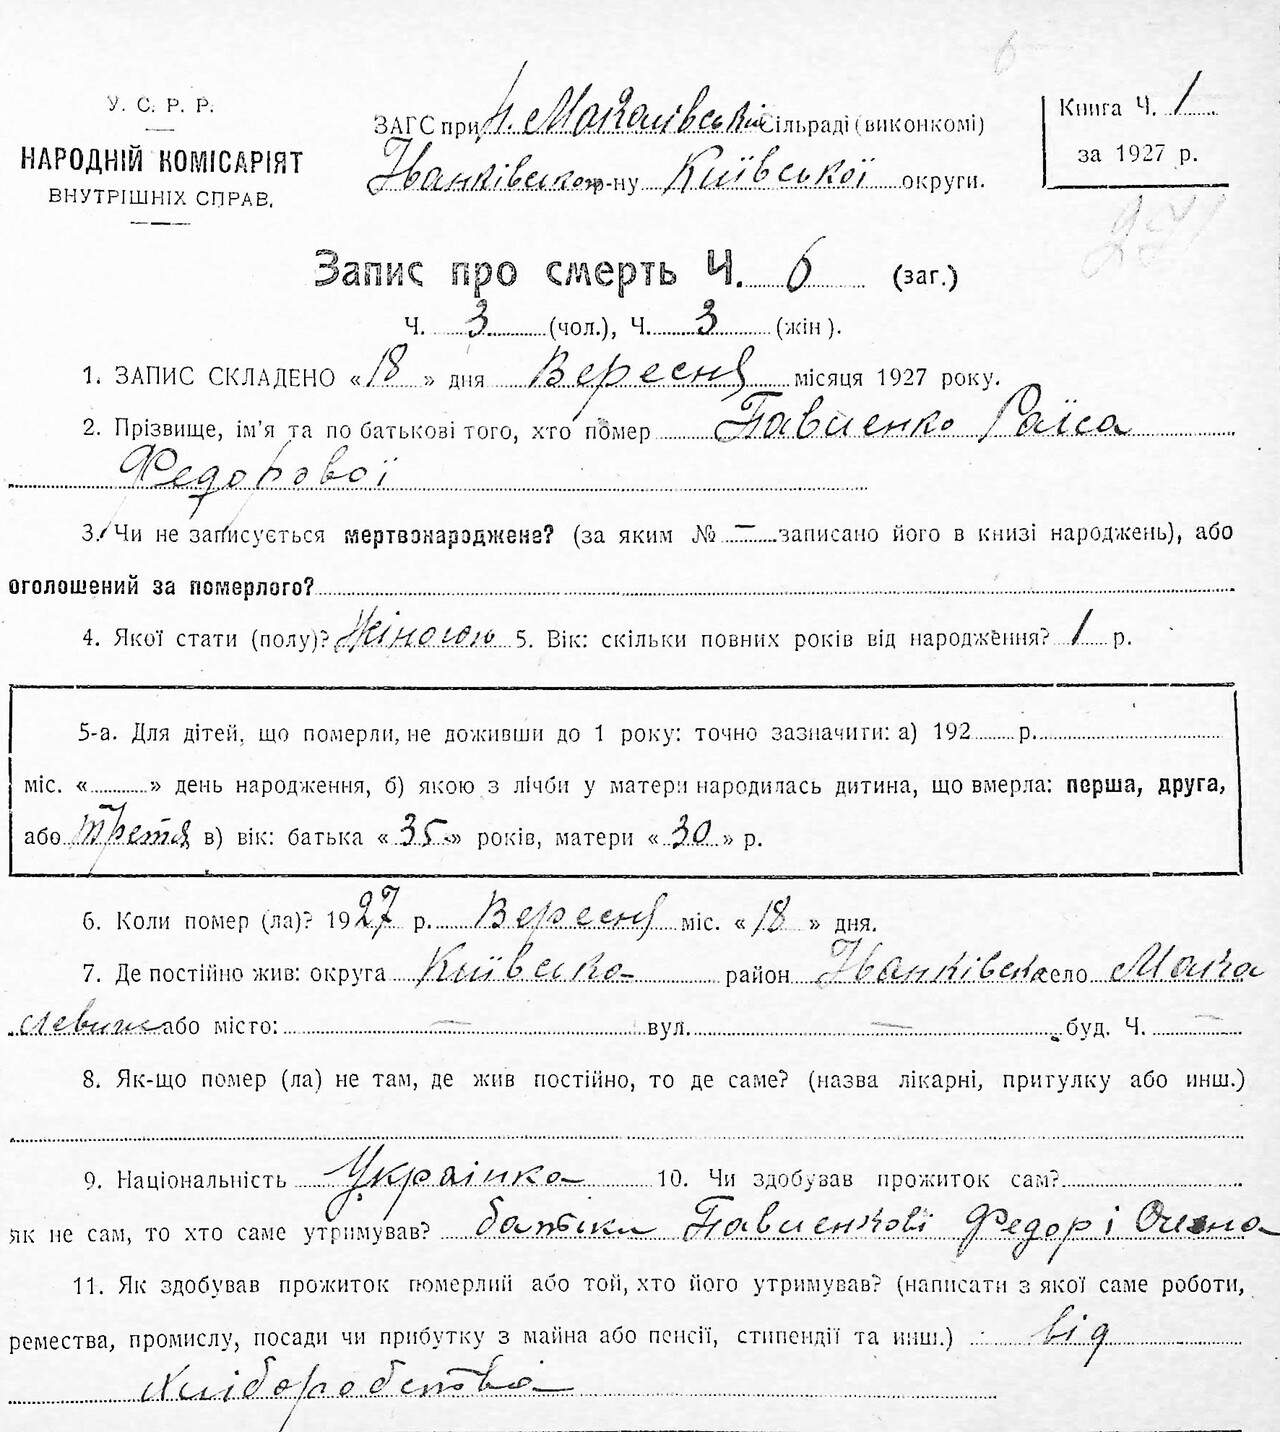 У. С. Р. Р.
НАРОДНІЙ КОМІСАРІЯТ
ВНУТРІШНІХ СПРАВ,
ЗАГС при Н. Макалівській Сільраді (виконкомі)
Іванківсько р-ну Київської округи.
Книга Ч. 1
за 1927 р.
271
Запис про смерть Ч. 6 (заг.)
Ч. 3 (чол.), Ч. 3 (жін).
1. ЗАПИС СКЛАДЕНО «18» дня Вересня місяця 1927 року.
2. Прізвище, ім'я та по батькові того, хто помер Павленко Раїса
Федорової
3. Чи не записується мертвонароджене? (за яким № — записано його в книзі народжень), або
оголошений за померлого?
4. Якої стати (полу)? Жіночої 5. Вік: скільки повних років від народження? 1 р.
5-а. Для дітей, що померли, не доживши до 1 року: точно зазначити: а) 192 р.
міс. « » день народження, б) якою з лічби у матери народилась дитина, що вмерла: перша, друга,
або третя в) вік: батька «35» років, матери «30» р.
6. Коли помер (ла)? 1927 р. Вересня міс. «18» дня.
7. Де постійно жив: округа Київська район Іванківськ село Мака
левич або місто: — вул. — буд. Ч. —
8. Як-що помер (ла) не там, де жив постійно, то де саме? (назва лікарні, притулку або инш.)
9. Національність Українка 10. Чи здобував прожиток сам?
як не сам, то хто саме утримував? батьки Павленкові Федор і Олена
11. Як здобував прожиток померлий або той, хто його утримував? (написати з якої саме роботи,
ремества, промислу, посади чи прибутку з майна або пенсії, стипендії та инш.) від
хліборобства